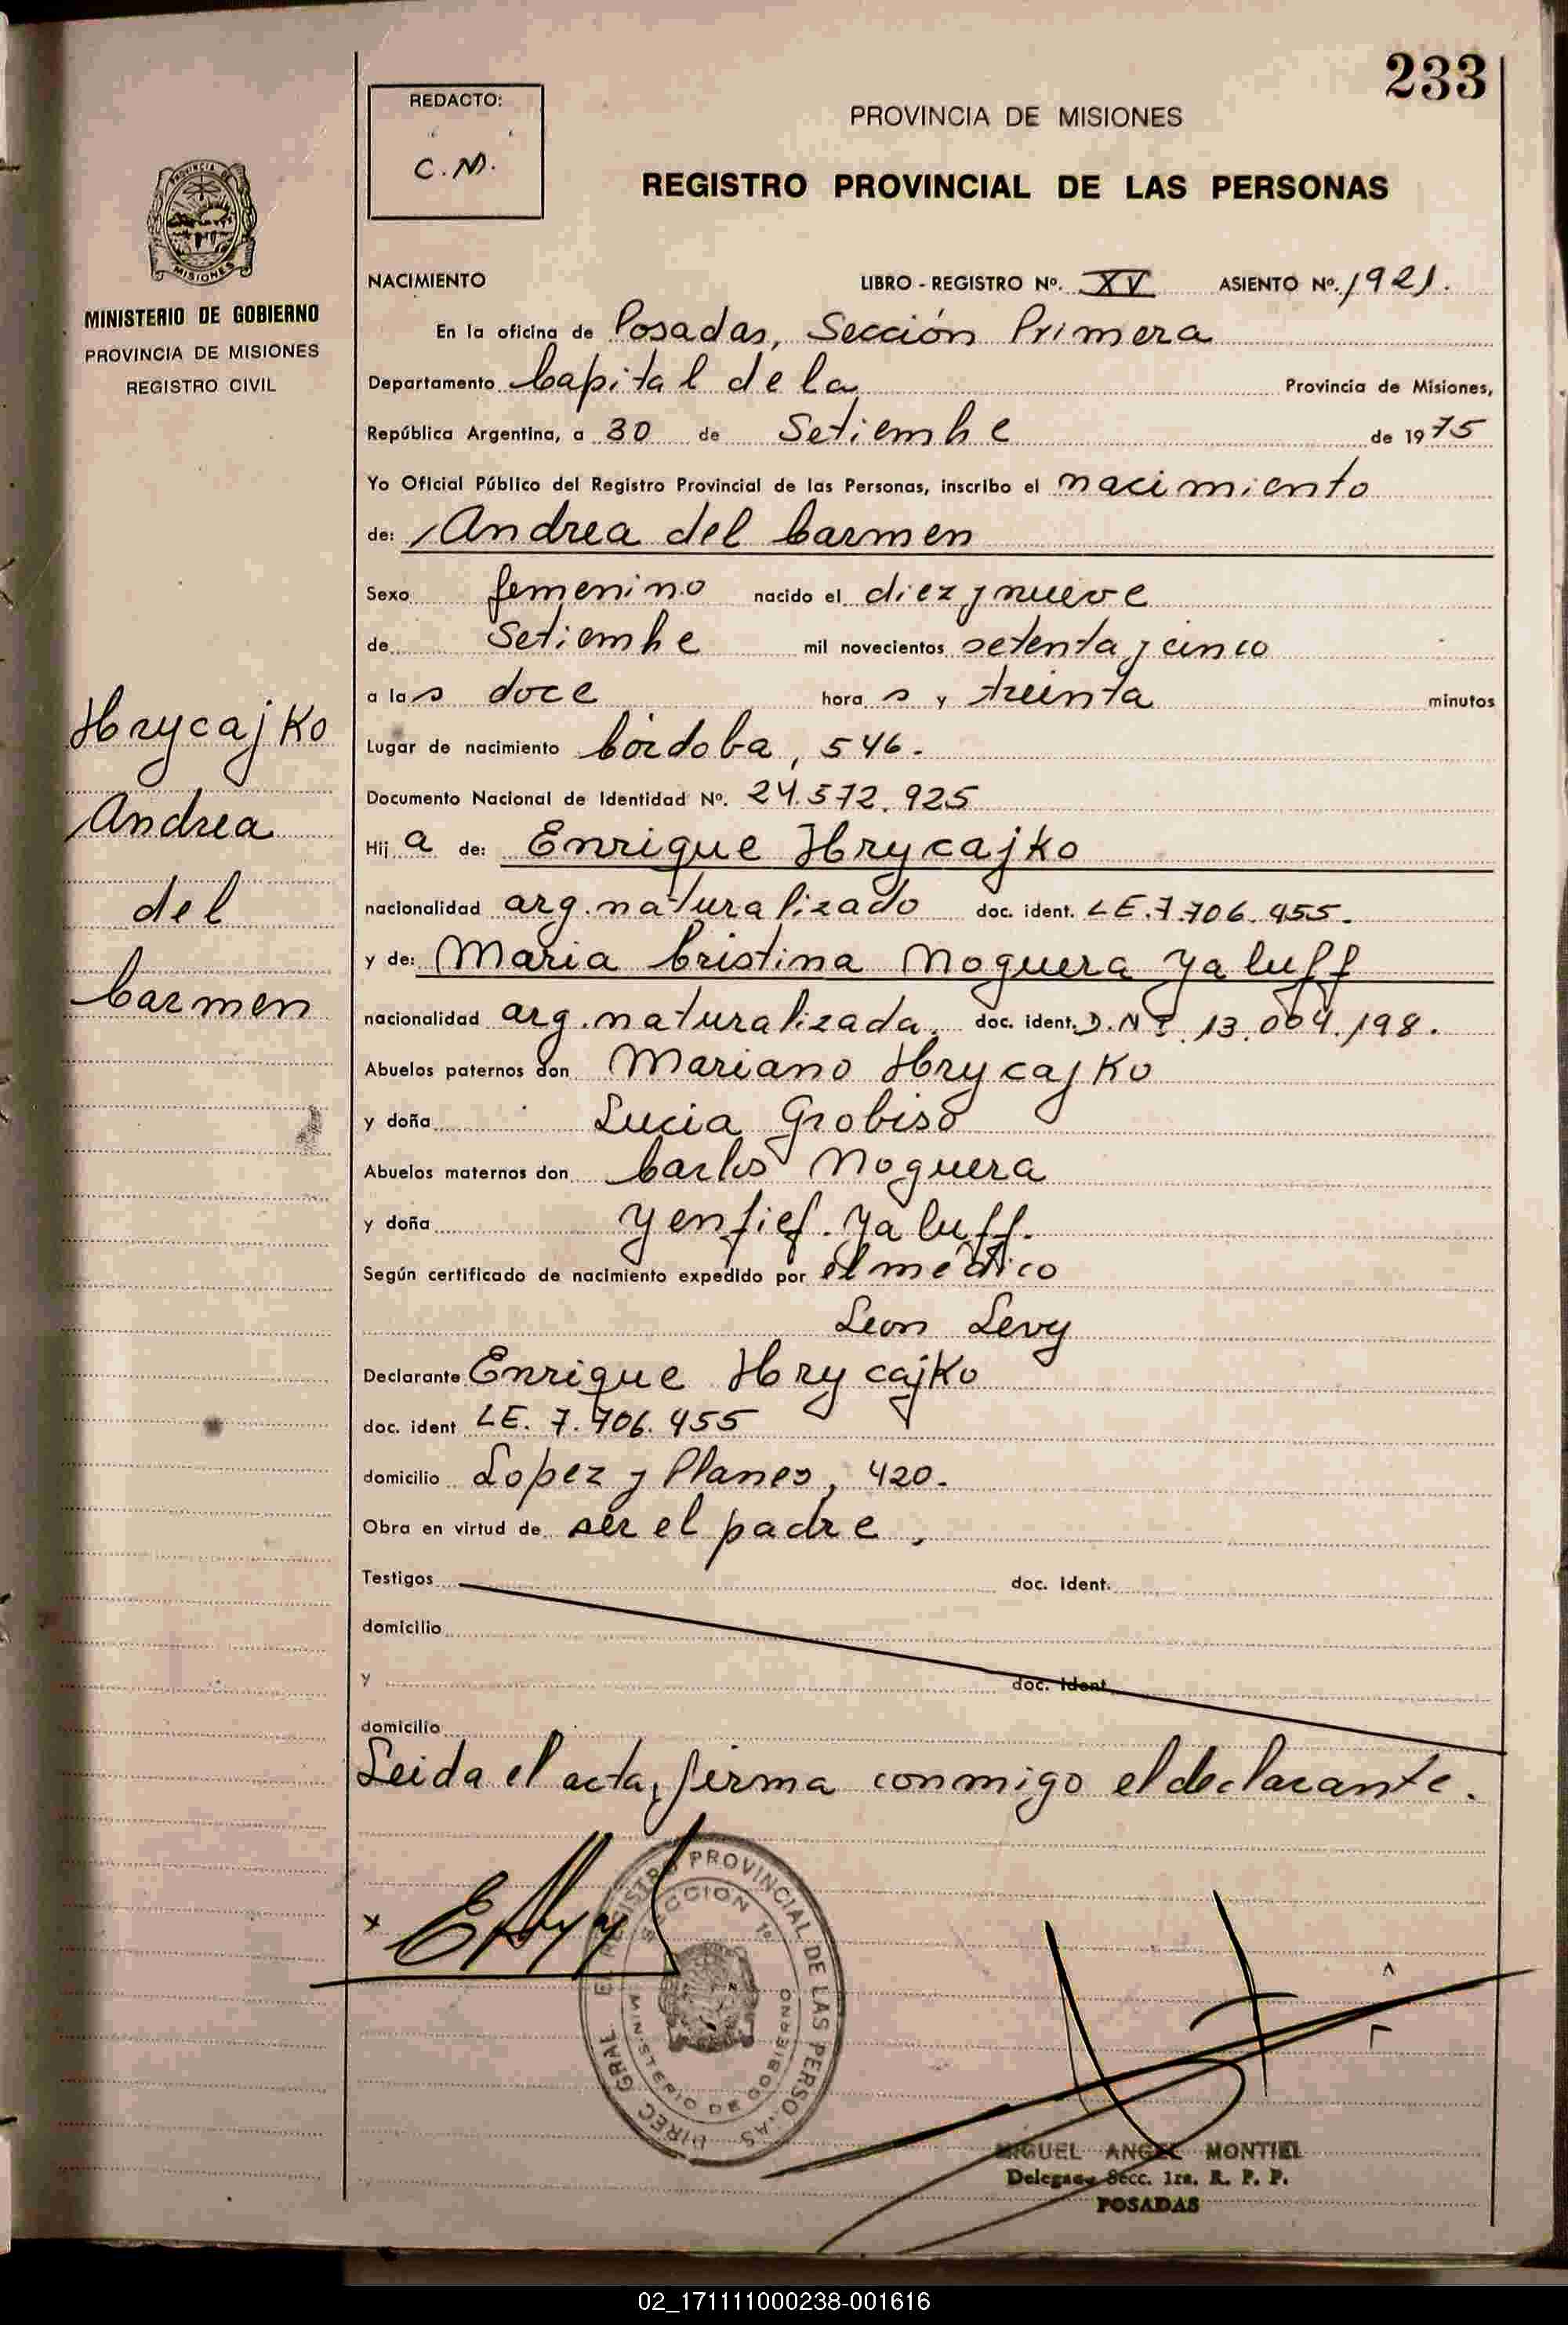 233
REDACTO:
C.M.
PROVINCIA DE MISIONES
REGISTRO PROVINCIAL DE LAS PERSONAS
PROVINCIA DE
MISIONES
MINISTERIO DE GOBIERNO
PROVINCIA DE MISIONES
REGISTRO CIVIL
Hrycajko
Andrea
del
Carmen
NACIMIENTO LIBRO - REGISTRO Nº. XV ASIENTO Nº. 1921.
En la oficina de Posadas, Sección Primera
Departamento Capital de la Provincia de Misiones,
República Argentina, a 30 de Setiembre de 1975
Yo Oficial Público del Registro Provincial de las Personas, inscribo el nacimiento
de: Andrea del Carmen
Sexo femenino nacido el diez y nueve
de Setiembre mil novecientos setenta y cinco
a las doce horas y treinta minutos
Lugar de nacimiento Córdoba, 546.
Documento Nacional de Identidad Nº. 24.572.925
Hija de: Enrique Hrycajko
nacionalidad arg. naturalizado doc. ident. LE. 7.706.455.
y de: Maria Cristina Noguera Yaluff
nacionalidad arg. naturalizada. doc. ident. D.N.I. 13.004.198.
Abuelos paternos don Mariano Hrycajko
y doña Lucia Grobiso
Abuelos maternos don Carlos Noguera
y doña Yenfief Yaluff.
Según certificado de nacimiento expedido por el médico
Leon Levy
Declarante Enrique Hrycajko
doc. ident LE. 7.706.455
domicilio Lopez y Planes, 420.
Obra en virtud de ser el padre.
Testigos doc. Ident.
domicilio
y doc. Ident.
domicilio
Leida el acta, firma conmigo el declarante.
DIREC GRAL. REGISTRO PROVINCIAL DE LAS PERSONAS
SECCION 1ª
MINISTERIO DE GOBIERNO
MIGUEL ANGEL MONTIEL
Delegado Secc. 1ra. R. P. P.
POSADAS
02_171111000238-001616